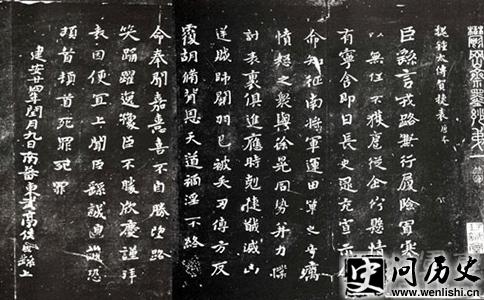 鬱岡齋墨妙
魏鍾太傅賀捷表
臣繇言戎路兼行履險冒寒
以無任不獲扈從企佇懸情
有寧舍即日長史逯充宣示
命知征南將軍運田單之奇厲
憤怒之衆與徐晃同勢并力撲
討表裏俱進應時剋捷馘滅凶
逆賊帥關羽已被矢刃傅方反
覆胡脩背恩天道禍淫不終
令奉聞嘉憙喜不自勝望路
笑踊躍逸豫臣不勝欣慶謹拜
表因便宜上聞臣繇誠惶誠恐
頓首頓首死罪死罪
建安廿四年閏月九日南蕃東武亭侯臣繇上
史 问历史
www.wenlishi.cn